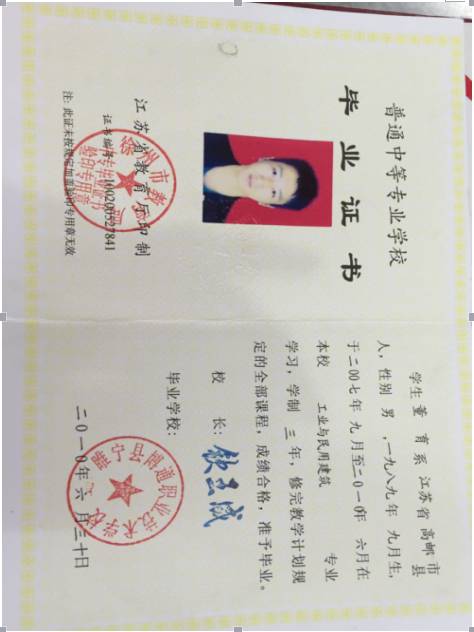 普通中等专业学校
毕业证书
江苏省教育厅印制
注：此证未按规定加盖验印专用章无效
学生 董 育 系 江苏省 高邮 市县
人，性别 男 ，一九八九年 九月生，
于二00七年 九月至二0一0年 六月在
本校 工业与民用建筑 专业
学习，学制 三 年，修完教学计划规
定的全部课程，成绩合格，准予毕业。
校 长：
毕业学校：
二0一0年 六 月三十日